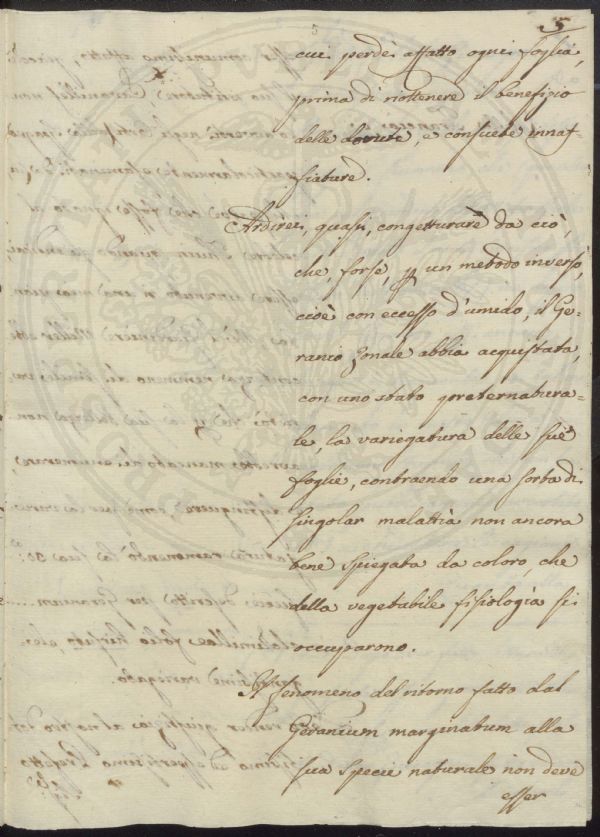 5
5
cui perdè affatto ogni foglia,
prima di riottenere il benefizio
delle dovute, e consuete innaf=
fiature.
Ardirei, quasi, congetturare da ciò,
che, forse, un metodo inverso,
cioè con eccesso d'umido, il Ge=
ranio zonale abbia acquistata,
con uno stato preternatura=
le, la variegatura delle sue
foglie, contraendo una sorta di
singolar malattia non ancora
bene spiegata da coloro, che
della vegetabile fisiologia si
occuparono.
Il fenomeno del ritorno fatto dal
Geranium marginatum alla
sua specie naturale non deve
esser